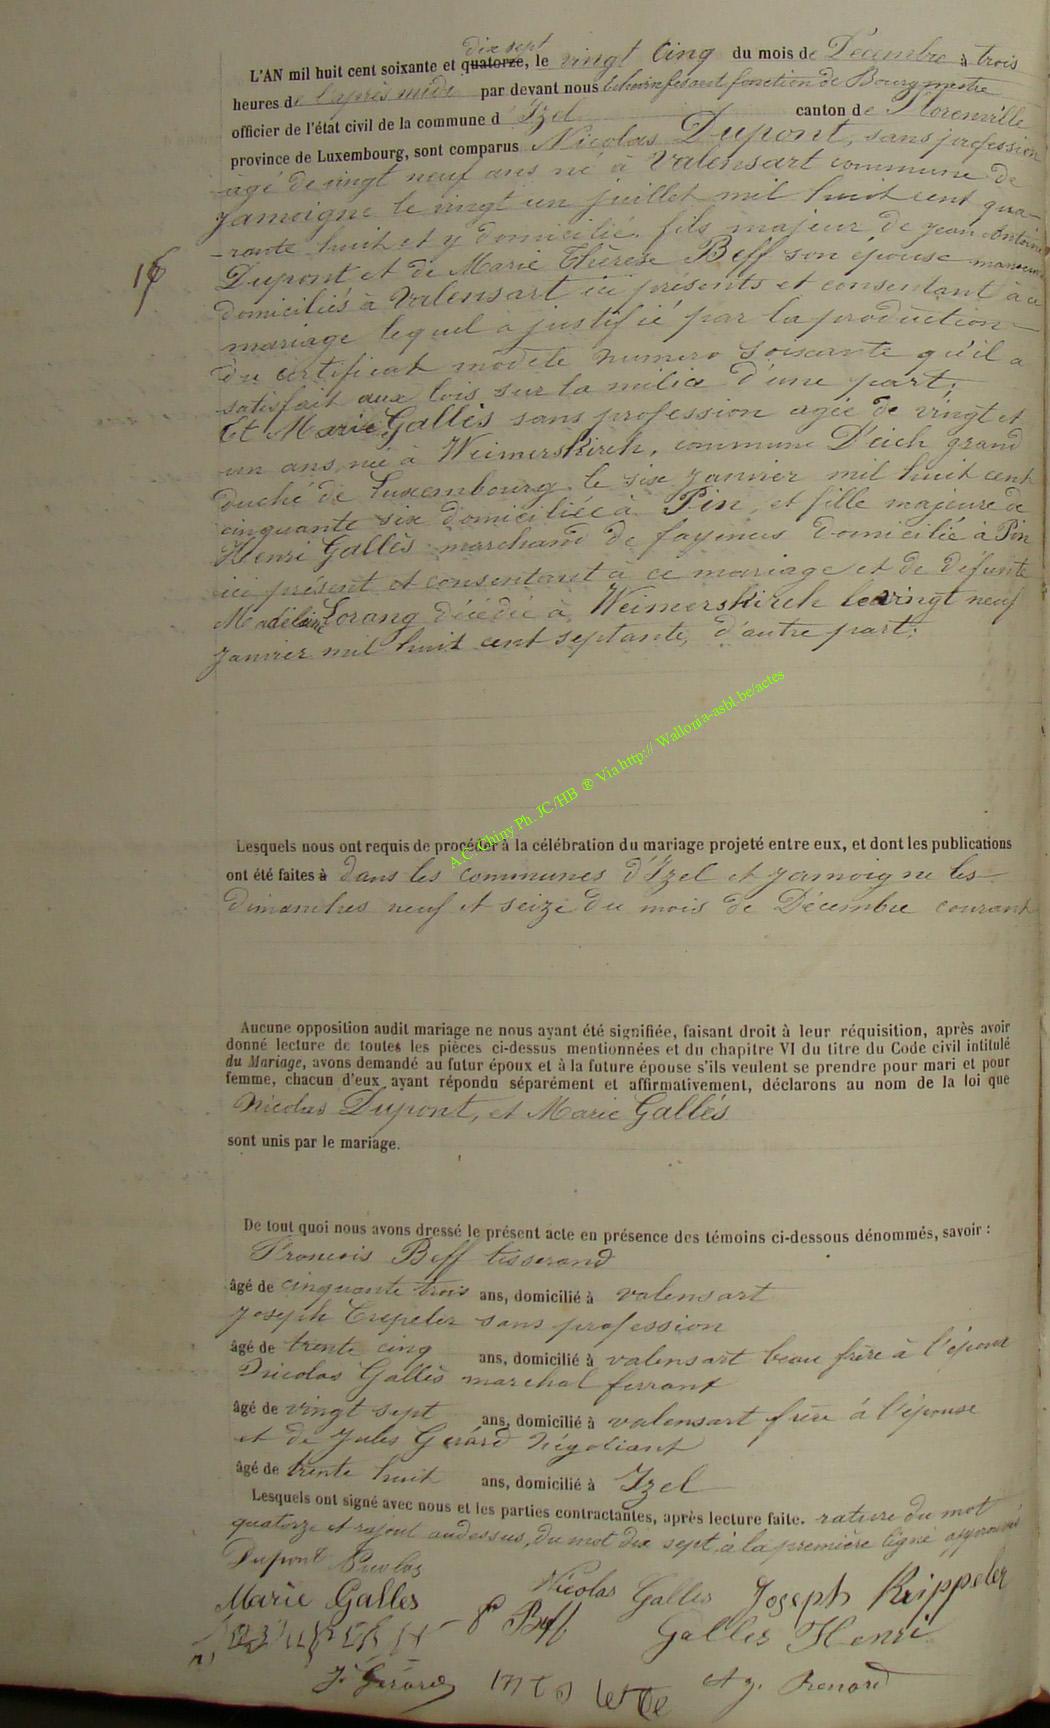 dix sept
L'AN mil huit cent soixante et quatorze, le vingt Cinq du mois de Décembre à trois
heures de l'après midi par devant nous Echevin fesant fonction de Bourgmestre
officier de l'état civil de la commune d'Izel canton de Florenville
province de Luxembourg, sont comparus Nicolas Dupont, sans profession
âgé de vingt neuf ans né à Valensart commune de
Jamoigne le vingt un juillet mil huit cent qua-
-rante huit et y domicilié fils majeur de Jean Antoine
16
Dupont et de Marie Thérèse Beff son épouse
domiciliés à Valensart ici présents et consentant à ce
mariage lequel a justifié par la production
du certificat modèle numero soixante qu'il a
satisfait aux lois sur la milice d'une part;
Et Marie Gallès sans profession agée de vingt et
un ans, née à Weimerskirch, commune D'eich grand
duché de Luxembourg le six janvier mil huit cent
cinquante six domiciliée à Pin, et fille majeure de
Henri Gallès marchand de fayences domicilié à Pin
ici présent et consentant à ce mariage et de défunte
Madelaine Lorang décédée à Weimerskirch le vingt neuf
janvier mil huit cent septante, d'autre part;
A.C. Chiny Ph. JC/HB ® Via http:// Wallonia-asbl.be/actes
Lesquels nous ont requis de procéder à la célébration du mariage projeté entre eux, et dont les publications
ont été faites à dans les communes d'Izel et Jamoigne les
dimanches neuf et seize du mois de Décembre courant
Aucune opposition audit mariage ne nous ayant été signifiée, faisant droit à leur réquisition, après avoir
donné lecture de toutes les pièces ci-dessus mentionnées et du chapitre VI du titre du Code civil intitulé
du Mariage, avons demandé au futur époux et à la future épouse s'ils veulent se prendre pour mari et pour
femme, chacun d'eux ayant répondu séparément et affirmativement, déclarons au nom de la loi que
Nicolas Dupont, et Marie Gallès
sont unis par le mariage.
De tout quoi nous avons dressé le présent acte en présence des témoins ci-dessous dénommés, savoir :
Francois Beff tisserand
âgé de cinquante trois ans, domicilié à valensart
Joseph Crepeler sans profession
âgé de trente cinq ans, domicilié à valensart beau frère à l'époux
Nicolas Gallès marchal ferrant
âgé de vingt sept ans, domicilié à valensart frère à l'épouse
et de Jules Gérard Négotiant
âgé de trente huit ans, domicilié à Izel
Lesquels ont signé avec nous et les parties contractantes, après lecture faite. rature du mot
quatorze et rajout audessus, du mot dix sept, à la première ligne approuvé
Dupont Nicolas
Marie Galles Nicolas Galles Joseph Krippeler
Beff Galles Henri
J. Gérard Renard